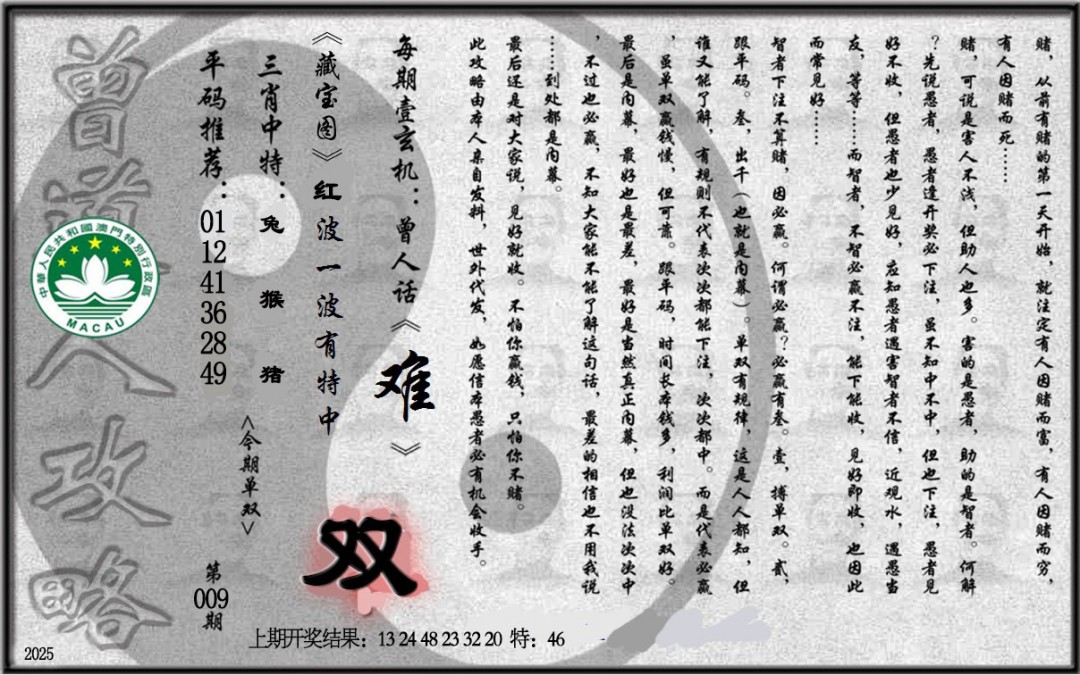 赌，从前有赌的第一天开始，就注定有人因赌而富，有人因赌而穷，
有人因赌而死……
赌，可说是害人不浅，但助人也多。害的是愚者，助的是智者。何解
？先说愚者，愚者逢开奖必下注，虽不知中不中，但也下注，愚者见
好不收，但愚者也少见好，应知愚者遇害智者不信，近观水，遇愚当
友，等等……而智者，不智必赢不注，能下能收，见好即收，也因此
而常见好……
智者下注不算赌，因必赢。何谓必赢？必赢有叁。壹，搏单双。贰，
跟平码。叁，出千（也就是内幕）。单双有规律，这是人人都知，但
谁又能了解，有规则不代表次次都能下注，次次都中。而是代表必赢
，虽单双赢钱慢，但可靠。跟平码，时间长本钱多，利润比单双好。
最后是内幕，最好也是最差，最好是当然真正内幕，但也没法次次中
，不过也必赢，不知大家能不能了解这句话，最差的相信也不用我说
……到处都是内幕。
最后还是对大家说，见好就收。不怕你赢钱，只怕你不赌。
此攻略由本人亲自发料，世外代发，如愿信本愚者必有机会收手。
每期壹玄机：曾人话《难》
《藏宝图》红波一波有特中
双
三肖中特：兔 猴 猪
<今期单双>
平码推荐：01 12 41 36 28 49
第009期
曾道人攻略
中華人民共和國澳門特別行政區
MACAU
上期开奖结果：13 24 48 23 32 20 特：46
2025